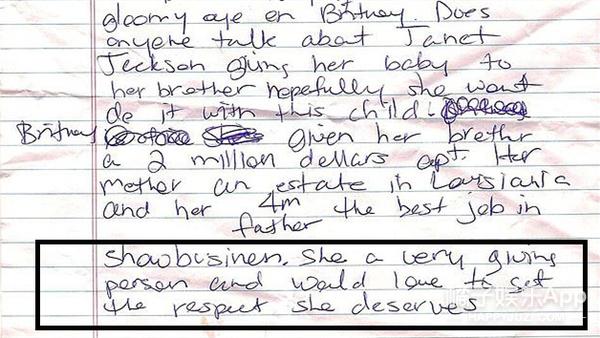 gloomy eye on Britney. Does
anyone talk about Janet
Jackson giving her baby to
her brother hopefully she wont
do it with this child.
Britney given her brother
a 2 million dollars apt. Her
mother an estate in Louisiana
and her 4m the best job in
father
showbusiness. She a very giving
person and would love to get
the respect she deserves
橘子娱乐App
HAPPYJUZI.COM